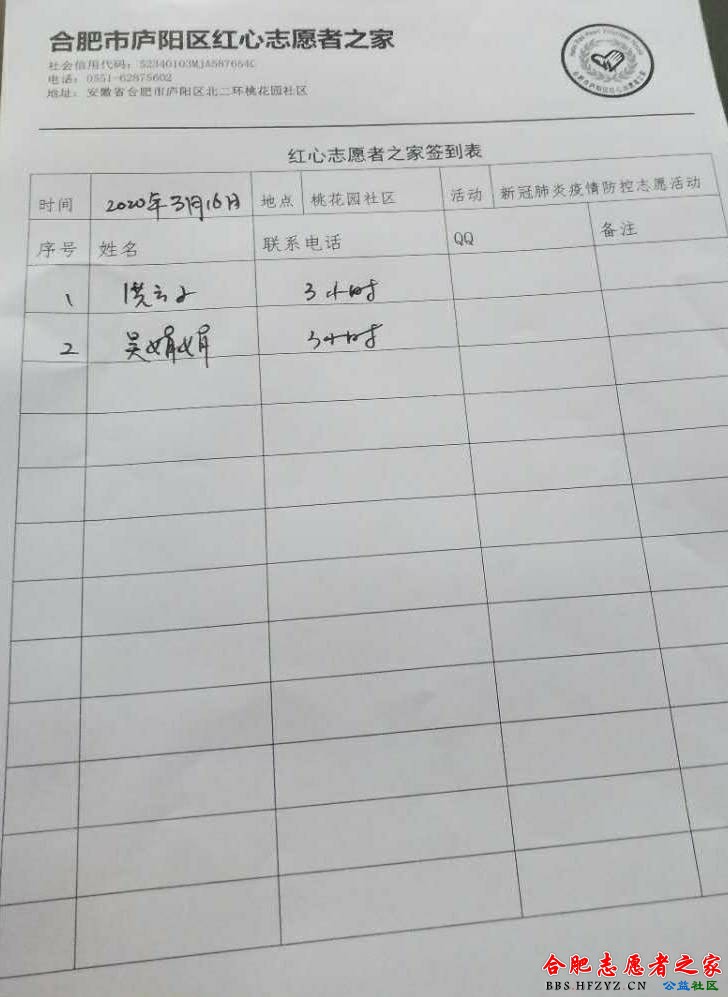 合肥市庐阳区红心志愿者之家
社会信用代码：52340103MJA587654C
电话：0551-62875602
地址：安徽省合肥市庐阳区北二环桃花园社区
红心志愿者之家签到表
时间 2020年3月16日 地点 桃花园社区 活动 新冠肺炎疫情防控志愿活动
序号 姓名 联系电话 QQ 备注
1 3小时
2 吴娟娟 3小时
合肥志愿者之家
BBS.HFZYZ.CN 公益社区